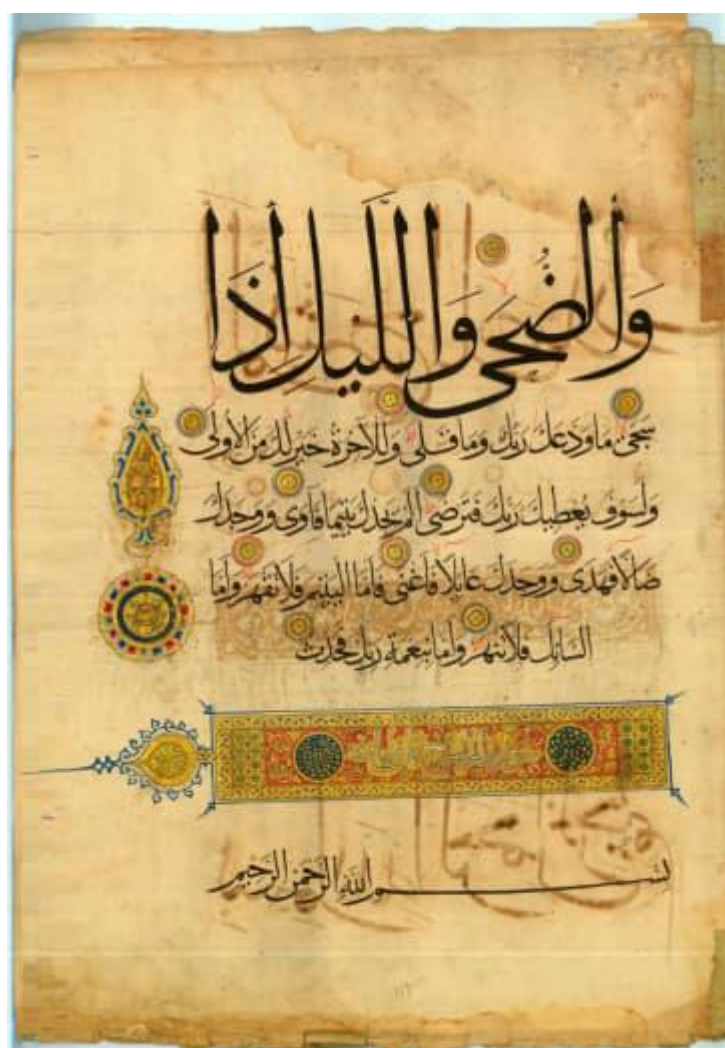 وَالضُّحَى وَاللَّيْلِ إِذَا
سَجَى مَا وَدَّعَكَ رَبُّكَ وَمَا قَلَى وَلَلْآخِرَةُ خَيْرٌ لَكَ مِنَ الْأُولَى
وَلَسَوْفَ يُعْطِيكَ رَبُّكَ فَتَرْضَى أَلَمْ يَجِدْكَ يَتِيمًا فَآوَى وَوَجَدَكَ
ضَالًّا فَهَدَى وَوَجَدَكَ عَائِلًا فَأَغْنَى فَأَمَّا الْيَتِيمَ فَلَا تَقْهَرْ وَأَمَّا
السَّائِلَ فَلَا تَنْهَرْ وَأَمَّا بِنِعْمَةِ رَبِّكَ فَحَدِّثْ
بِسْمِ اللَّهِ الرَّحْمَنِ الرَّحِيمِ